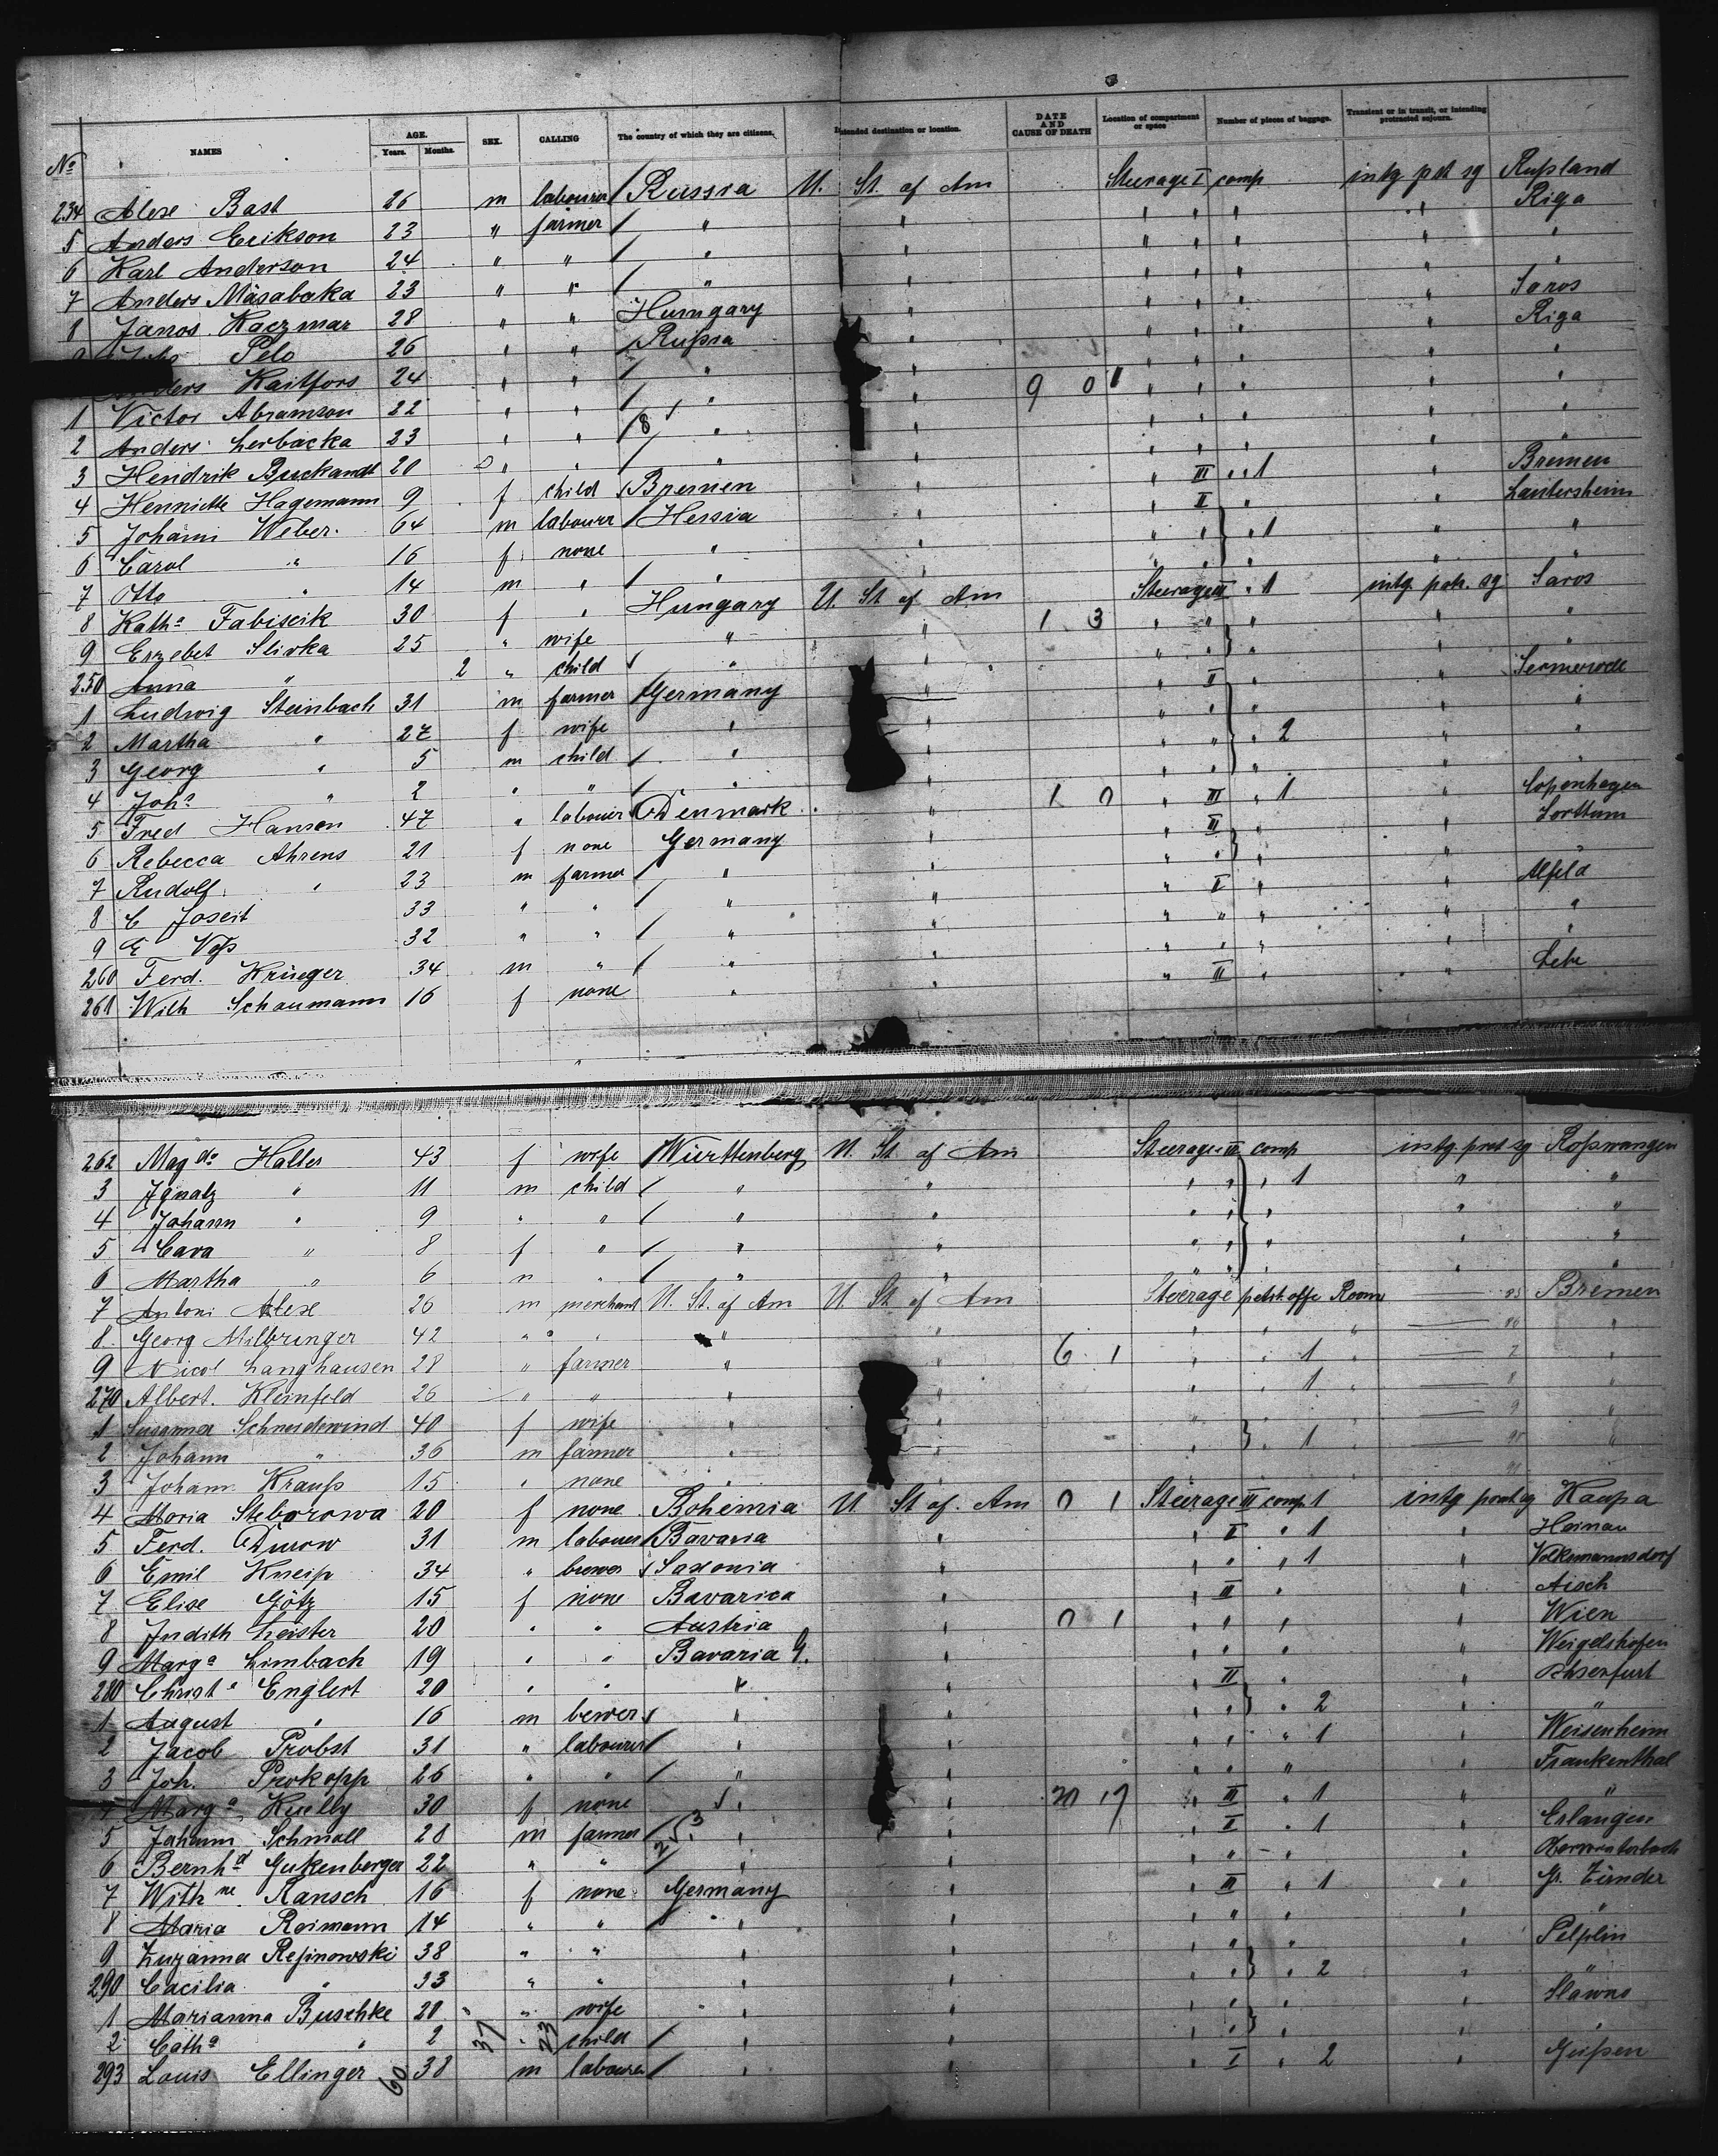 No NAMES AGE. Years. Months. SEX. CALLING The country of which they are citizens. Intended destination or location. DATE AND CAUSE OF DEATH Location of compartment or space Number of pieces of baggage. Transient or in transit, or intending protracted sojourn.
234 Alex Bast 26 m labourer Russia U. St. of Am Steerage I comp intg prt sg Rußland
5 Anders Erikson 23 " farmer " " " " " " Riga
6 Karl Anderson 24 " " " " " " " " "
7 Anders Mäsabaka 23 " " " " " " " " "
8 Janos Kaczmar 28 " " Hungary " " " " " Saros
Pelo 26 " " Rußia " " " " " Riga
Kaitfors 24 " " " " " " " " "
1 Victor Abramson 22 " " " " 9 0 1 " " " " "
2 Anders Lerbacka 23 " " 8 " " " " " " "
3 Hendrik Buckandt 20 " " " " " " " " "
4 Henriette Hagemann 9 f child Bremen " " III " 1 " Bremen
5 Johann Weber 64 m labourer Hessia " " II " " Lautersheim
6 Carol " 16 f none " " " " " 1 " "
7 Otto " 14 m " " " " " " " "
8 Katha Fabiscik 30 f " Hungary U. St. of Am Steerage III " 1 intg prt. sg Saros
9 Erzebet Slivka 25 " wife " " 1 3 " " " " "
250 Anna " 2 " child " " " " " " "
1 Ludwig Steinbach 31 m farmer Germany " " II " " Sermerode
2 Martha " 27 f wife " " " " " " "
3 Georg " 5 m child " " " " " 2 " "
4 Joh. " 2 " " " " " " " " "
5 Fred Hansen 47 " labourer Denmark " 1 0 " III " 1 " Copenhagen
6 Rebecca Ahrens 21 f none Germany " " III " " Lorttum
7 Rudolf " 23 m farmer " " " " " " "
8 C Joseit 33 " " " " " I " " Alfeld
9 E Voß 32 " " " " " " " " "
260 Ferd. Krüeger 34 m " " " " " " " "
261 Wilh Schaumann 16 f none " " " II " " Lehe
262 Magda Halter 43 f wife Württenberg U. St. of Am Steerage III comp intg prt sg Roßwangen
3 Ignatz " 11 m child " " " " " 1 " "
4 Johann " 9 " " " " " " " " "
5 Cara " 8 f " " " " " " " "
6 Martha " 6 " " " " " " " " "
7 Antoni Alexe 26 m merchant U. St. of Am U. St. of Am Steerage Room Bremen
8 Georg Milbringer 42 " " " " " " " "
9 Nicol Langhausen 28 " farmer " " 6 1 " " 1 " "
270 Albert Kleinfeld 26 " " " " " " 1 " "
1 Susanna Schneidewind 40 f wife " " " " "
2 Johann " 36 m farmer " " " " 1 "
3 Johann Krauß 15 " none "
4 Maria Steborowa 20 f none Bohemia U St of Am 0 1 Steerage III comp 1 intg prt sg Kaupa
5 Ferd. Durow 31 m labourer Bavaria " " I " 1 " Hainau
6 Emil Kneip 34 " brewer Saxonia " " " " 1 " Volkmannsdorf
7 Elise Götz 15 f none Bavarica " " III " " Aisch
8 Judith Leister 20 " " Austria " 0 1 " " " " Wien
9 Marga Limbach 19 " " Bavaria G. " " " " " Weigelshofen
280 Christa Englert 20 " " " " " II " "
1 August " 16 m bewer " " " " " 2 "
2 Jacob Probst 31 " labourer " " " " " 1 " Weisenheim
3 Joh. Prokopp 26 " " " " " " " " Frankenthal
4 Marga Kuelly 30 f none " " 20 17 " III " 1 " "
5 Johann Schmoll 28 m farmer " " " I " 1 " Erlangen
6 Bernhd Gukenberger 22 " " " " " " " "
7 Withne Ransch 16 f none Germany " " III " 1 " Gr. Zünder
8 Maria Reimann 14 " " " " " " " " "
9 Zuzanna Reßinowski 38 " " " " " " " " Pelplin
290 Cäcilia " 33 " " " " " " " 2 " "
1 Marianna Buschke 20 " wife " " " " " " Slawno
2 Catha " 2 " child " " " " " " "
293 Louis Ellinger 38 m labourer " " " I " 2 " Gießen
60 37 23